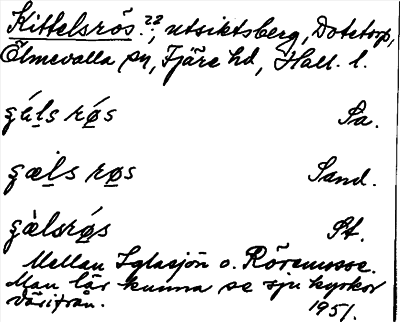 Kittelsrös ??, utsiktsberg, Dotetorp,
Älmevalla sn, Fjäre hd, Hall. l.
gáls røs Sa.
gæls røs Sand.
gàlsrøs St.
Mellan Iglasjön o. Röremosse.
Man lär kunna se sju kyrkor
därifrån. 1951.